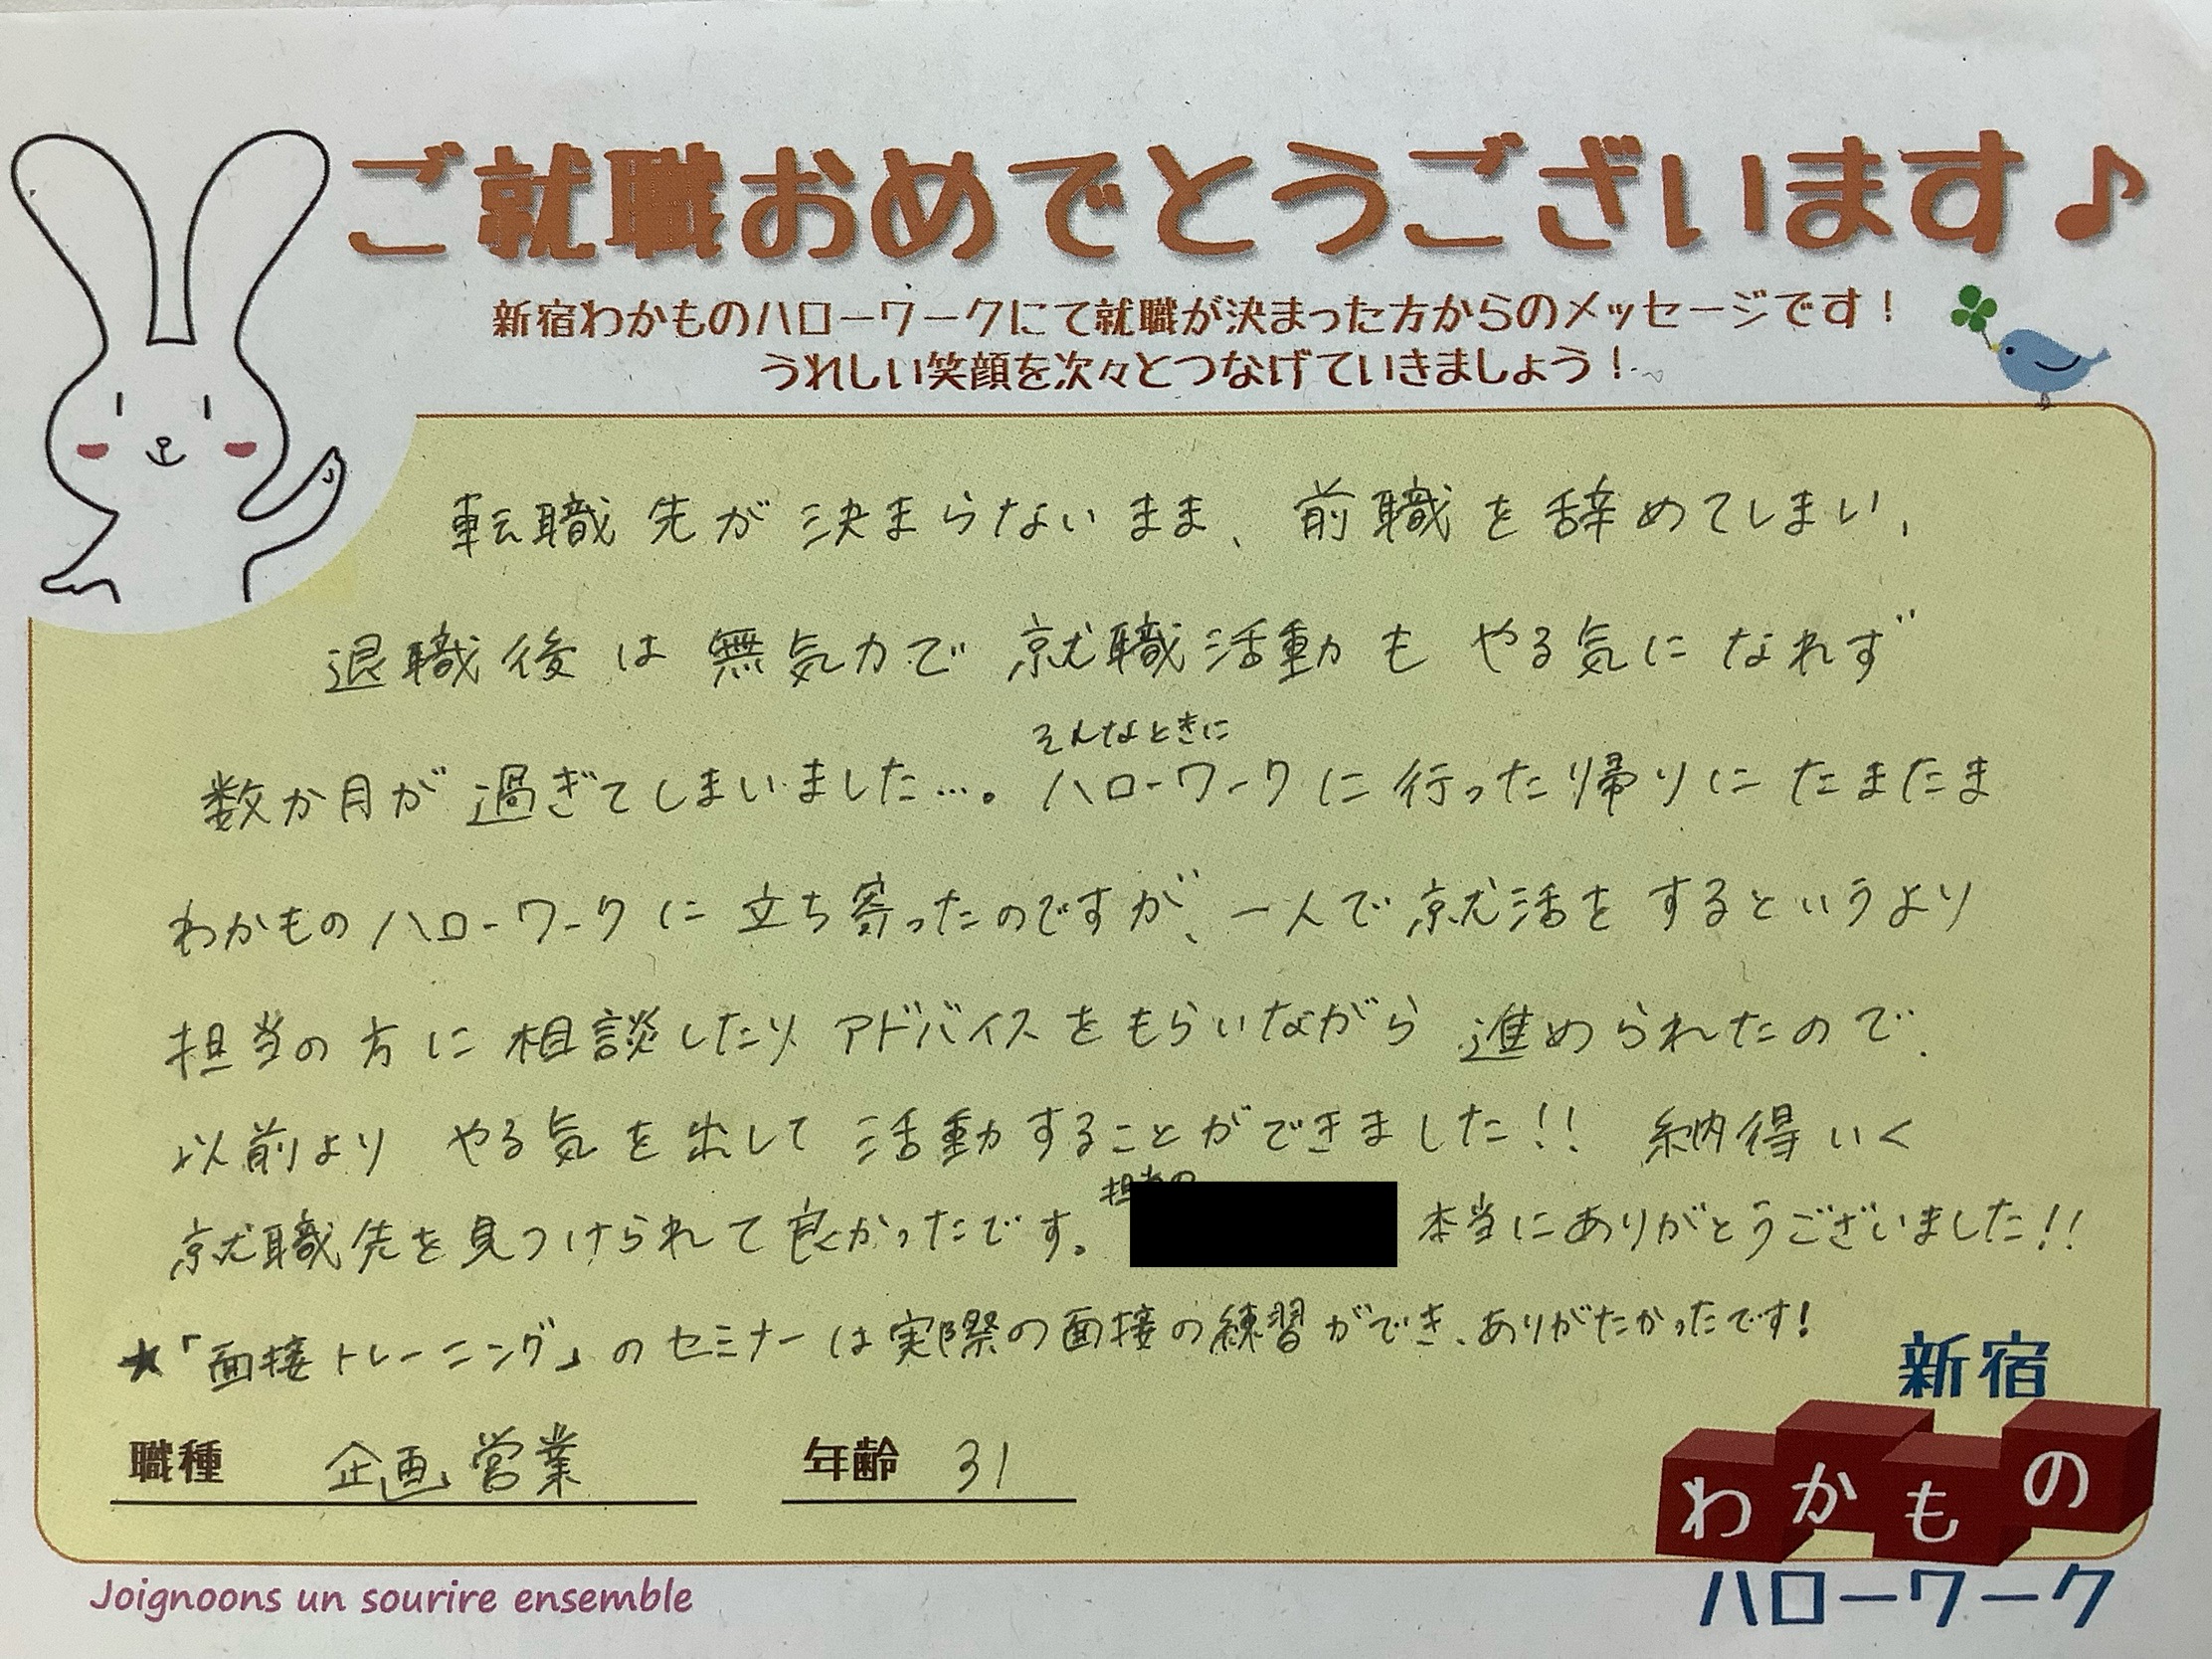 ご就職おめでとうございます♪
新宿わかものハローワークにて就職が決まった方からのメッセージです！
うれしい笑顔を次々とつなげていきましょう！
転職先が決まらないまま、前職を辞めてしまい、
退職後は無気力で就職活動もやる気になれず
そんなときに
数か月が過ぎてしまいました…。ハローワークに行った帰りにたまたま
わかものハローワークに立ち寄ったのですが、一人で就活をするというより
担当の方に相談したりアドバイスをもらいながら進められたので、
以前よりやる気を出して活動することができました!! 納得いく
担当の
就職先を見つけられて良かったです。 本当にありがとうございました!!
★「面接トレーニング」のセミナーは実際の面接の練習ができ、ありがたかったです!
職種 企画営業 年齢 31
新宿
わかもの
ハローワーク
Joignoons un sourire ensemble